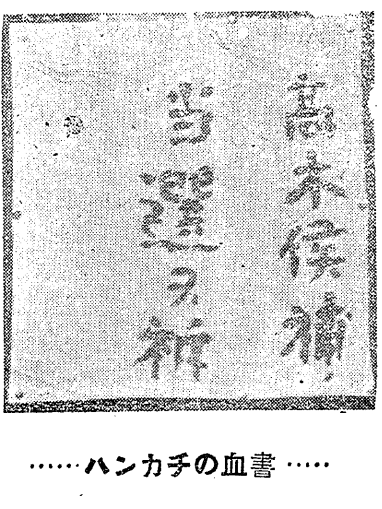 高木侯補
当選ヲ祈
……ハンカチの血書……